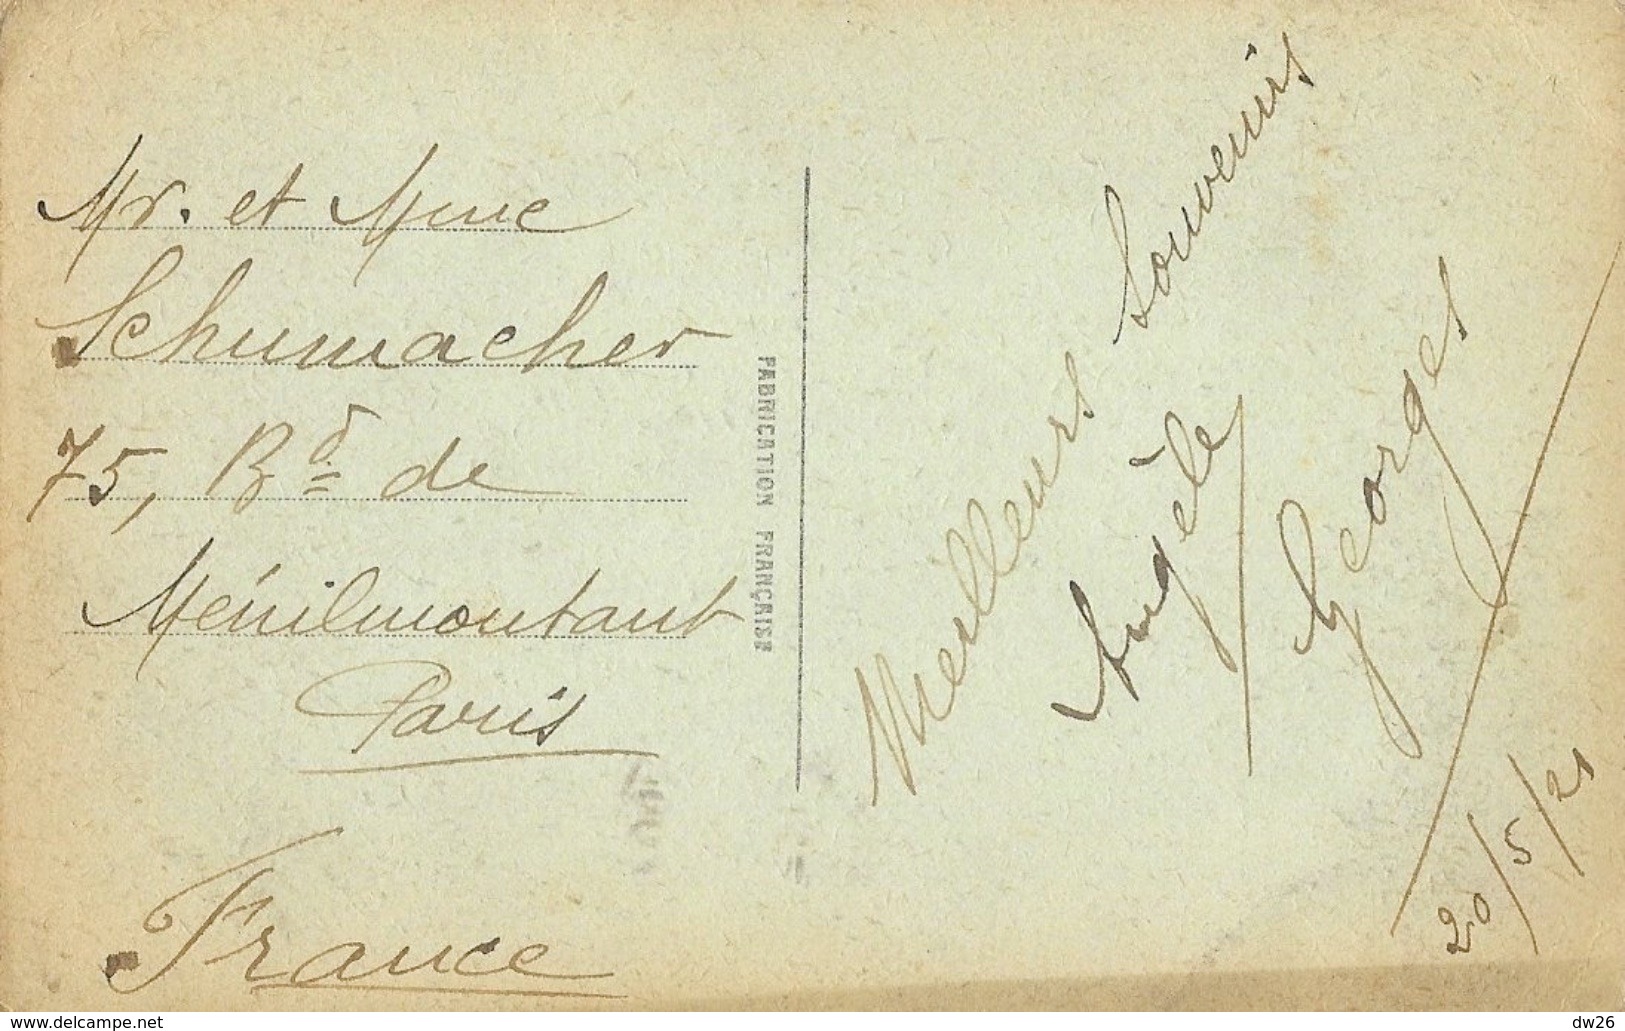 Mr. et Mme
Schumacher
75, Bd de
Ménilmontant
Paris
France
FABRICATION FRANÇAISE
Meilleurs Souvenirs
Angèle
Georges
20/5/21
www.delcampe.net
dw26